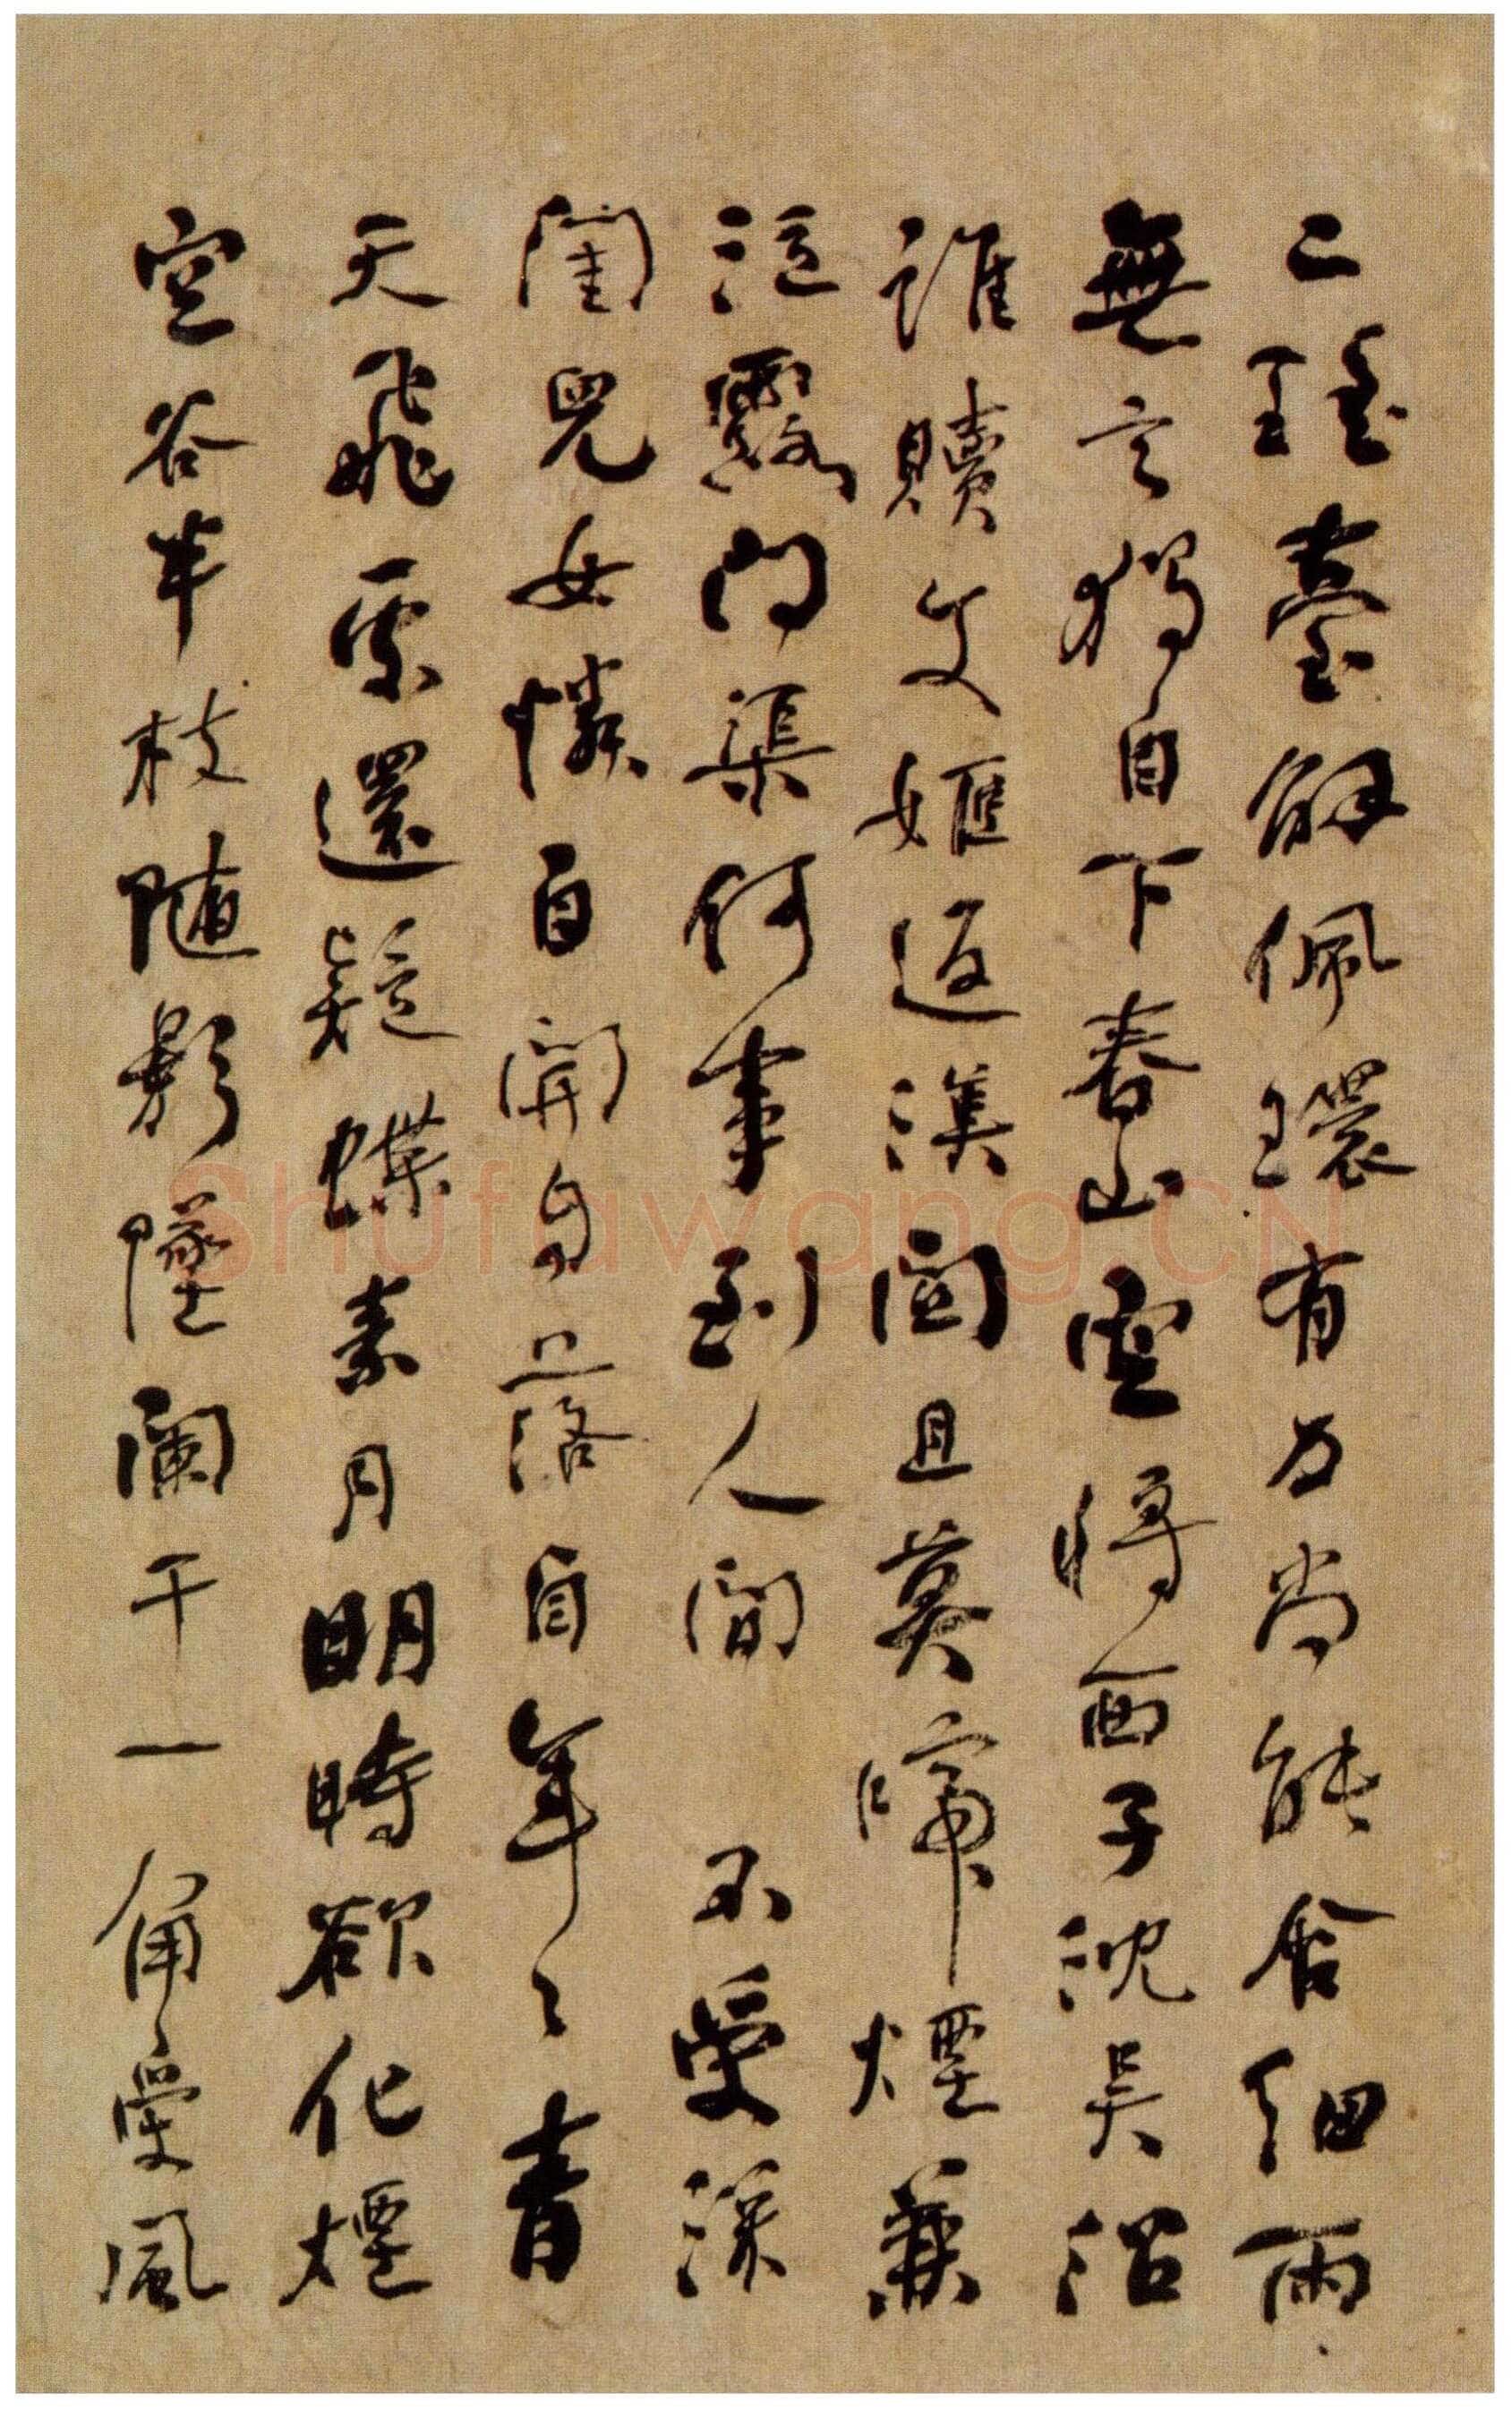 二瑤臺解佩環有力尚能含細雨
無言獨自下春山空將西子沈吳沼
誰贖文姬返漢關且莫啼煙兼
泣露問渠何事到人間 不受深
閨兒女憐自開自落自年々青
天飛處還疑蝶素月明時欲化煙
空谷半枝隨影墜闌干一角受風
Shufawang.CN